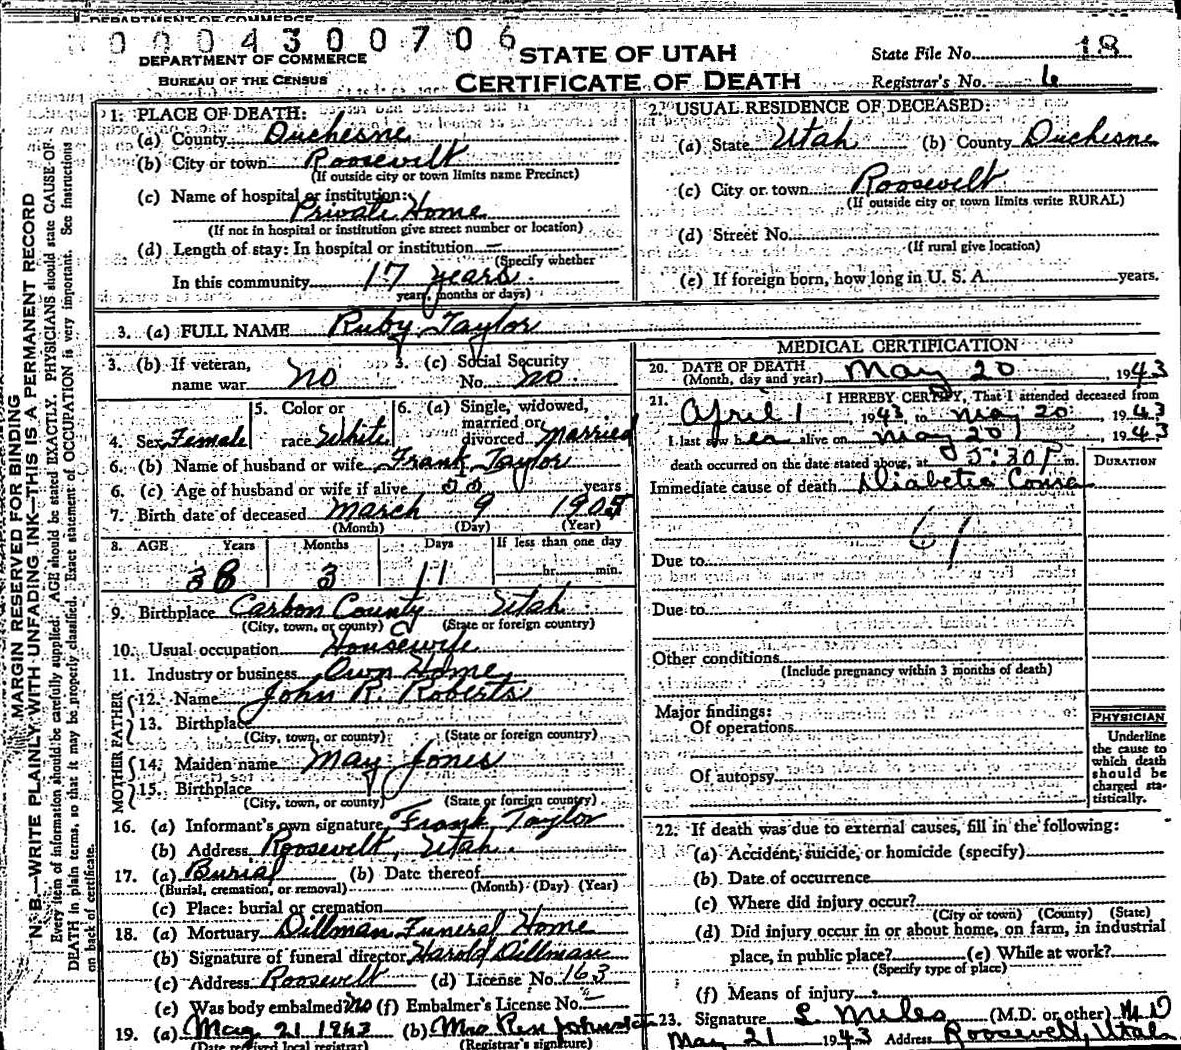 DEPARTMENT OF COMMERCE
0004300706
STATE OF UTAH
State File No. 18
DEPARTMENT OF COMMERCE
BUREAU OF THE CENSUS
CERTIFICATE OF DEATH
Registrar's No. 6
MARGIN RESERVED FOR BINDING
N. B.—WRITE PLAINLY, WITH UNFADING INK—THIS IS A PERMANENT RECORD
Every item of information should be carefully supplied. AGE should be stated EXACTLY. PHYSICIANS should state CAUSE OF
DEATH in plain terms, so that it may be properly classified. Exact statement of OCCUPATION is very important. See instructions
on back of certificate.
1. PLACE OF DEATH:
(a) County Duchesne
(b) City or town Roosevelt
(If outside city or town limits name Precinct)
(c) Name of hospital or institution:
Private Home
(If not in hospital or institution give street number or location)
(d) Length of stay: In hospital or institution —
(Specify whether
In this community 17 years.
years, months or days)
2. USUAL RESIDENCE OF DECEASED:
(a) State Utah (b) County Duchesne
(c) City or town Roosevelt
(If outside city or town limits write RURAL)
(d) Street No.
(If rural give location)
(e) If foreign born, how long in U. S. A. years.
3. (a) FULL NAME Ruby Taylor
3. (b) If veteran, name war no
3. (c) Social Security No. no
4. Sex Female
5. Color or race White
6. (a) Single, widowed, married or divorced Married
6. (b) Name of husband or wife Frank Taylor
6. (c) Age of husband or wife if alive years
7. Birth date of deceased March 9 1905
(Month) (Day) (Year)
8. AGE Years Months Days If less than one day
38 3 11 hr. min.
9. Birthplace Carbon County Utah
(City, town, or county) (State or foreign country)
10. Usual occupation Housewife
11. Industry or business Own Home
FATHER
12. Name John R. Roberts
13. Birthplace
(City, town, or county) (State or foreign country)
MOTHER
14. Maiden name May Jones
15. Birthplace
(City, town, or county) (State or foreign country)
16. (a) Informant's own signature Frank Taylor
(b) Address Roosevelt, Utah
17. (a) Burial (b) Date thereof
(Burial, cremation, or removal) (Month) (Day) (Year)
(c) Place: burial or cremation
18. (a) Mortuary Dillman Funeral Home
(b) Signature of funeral director Harold Dillman
(c) Address Roosevelt (d) License No. 163
(e) Was body embalmed? no (f) Embalmer's License No. —
19. (a) May 21 1943 (b) Mrs Ren
(Date received local registrar) (Registrar's signature)
MEDICAL CERTIFICATION
20. DATE OF DEATH
(Month, day and year) May 20, 1943
21. I HEREBY CERTIFY, That I attended deceased from
April 1, 1943 to May 20, 1943
I last saw her alive on May 20, 1943
death occurred on the date stated above, at 5:30 P m.
DURATION
Immediate cause of death Diabetic Coma
61
Due to
Due to
Other conditions
(Include pregnancy within 3 months of death)
Major findings:
Of operations
Of autopsy
PHYSICIAN
Underline
the cause to
which death
should be
charged sta-
tistically.
22. If death was due to external causes, fill in the following:
(a) Accident, suicide, or homicide (specify)
(b) Date of occurrence
(c) Where did injury occur?
(City or town) (County) (State)
(d) Did injury occur in or about home, on farm, in industrial
place, in public place? (e) While at work?
(Specify type of place)
(f) Means of injury
23. Signature L Miles (M.D. or other) M D
May 21 1943 Address Roosevelt, Utah